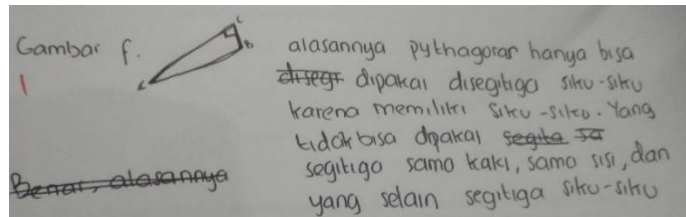 Gambar f. alasannya pythagoras hanya bisa
disegi dipakai disegitiga siku-siku
karena memiliki siku-siku. Yang
tidak bisa dipakai segita sa
segitiga sama kaki, sama sisi, dan
Benar, alasannya
yang selain segitiga siku-siku